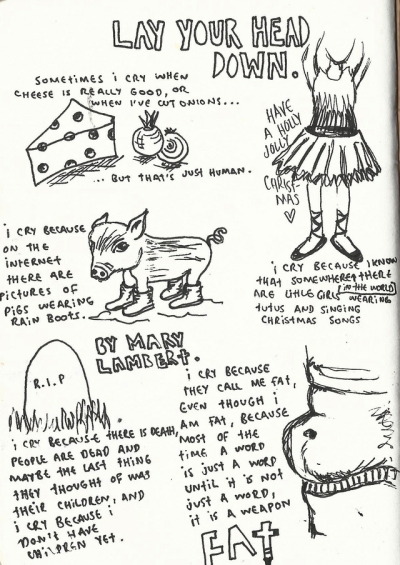 LAY YOUR HEAD
DOWN.
SOMETIMES i CRY WHEN
CHEESE IS REALLY GOOD, OR
WHEN I'VE CUT ONIONS...
... BUT THAT'S JUST HUMAN.
HAVE
A HOLLY
JOLLY
CHRIST-
MAS
i CRY BECAUSE
ON THE
INTERNET
THERE ARE
PICTURES OF
PIGS WEARING
RAIN BOOTS.
i CRY BECAUSE I KNOW
THAT SOMEWHERE THERE
ARE LITTLE GIRLS IN THE WORLD
WEARING
TUTUS AND SINGING
CHRISTMAS SONGS
BY MARY
LAMBERT.
R.I.P
i CRY BECAUSE THERE IS DEATH,
PEOPLE ARE DEAD AND
MAYBE THE LAST THING
THEY THOUGHT OF WAS
THEIR CHILDREN, AND
i CRY BECAUSE i
DON'T HAVE
CHILDREN YET.
i CRY BECAUSE
THEY CALL ME FAT,
EVEN THOUGH i
AM FAT, BECAUSE
MOST OF THE
TIME A WORD
IS JUST A WORD
UNTIL IT IS NOT
JUST A WORD,
IT IS A WEAPON
FAT